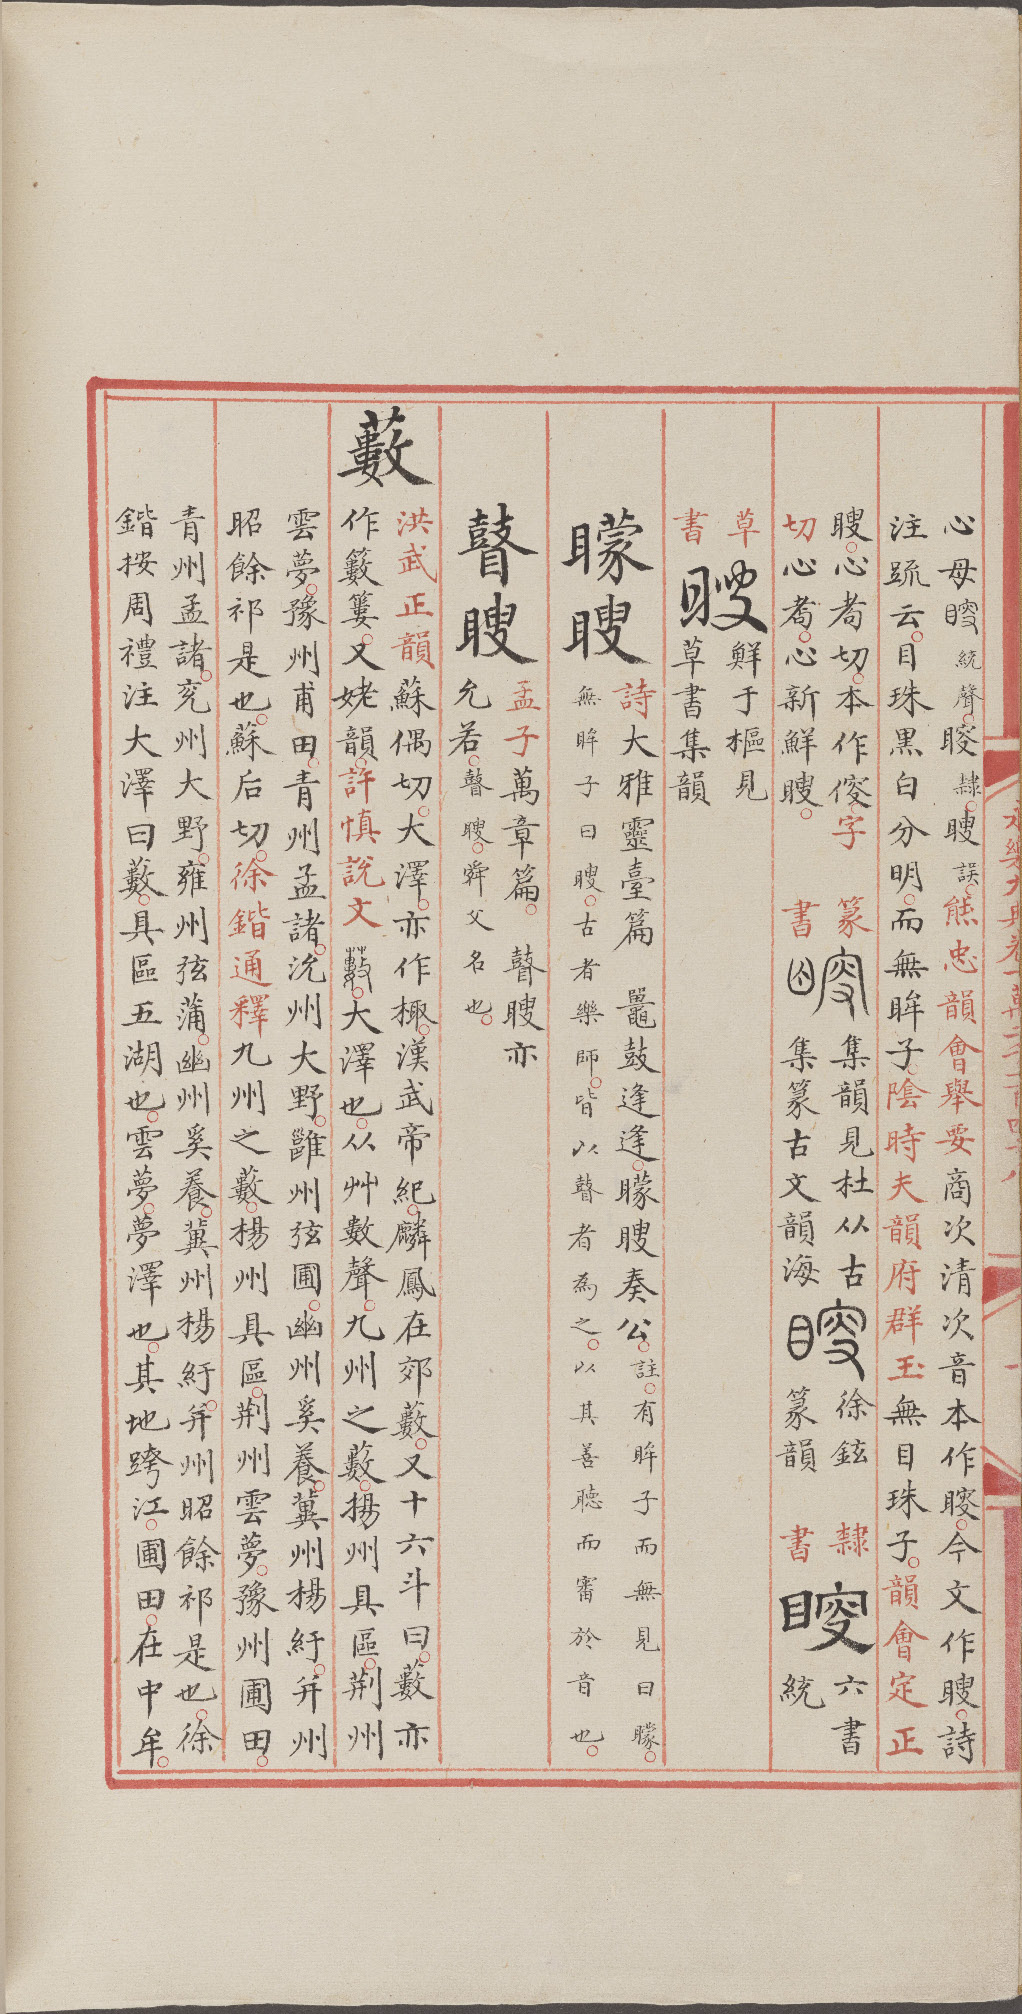 心母瞍統聲䏂隸瞍誤熊忠韻會舉要商次清次音本作䏂今文作瞍詩
注䟽云目珠黑白分明而無眸子陰時夫韻府群玉無目珠子韻會定正
瞍心耇切本作傁字 篆 集韻見杜从古 徐鉉 隸 六書
切心耇心新鮮瞍 書 集篆古文韻海 篆韻 書 統
草 瞍 鮮于樞見
書 草書集韻
矇瞍 詩大雅靈臺篇 鼉鼓逢逢矇瞍奏公註有眸子而無見曰矇
無眸子曰瞍古者樂師皆以瞽者為之以其善聽而審於音也
瞽瞍 孟子萬章篇 瞽瞍亦
允若瞽瞍舜父名也
藪 洪武正韻蘇偶切大澤亦作棷漢武帝紀麟鳳在郊藪又十六斗曰藪亦
作籔䉤又姥韻許慎說文藪大澤也从艸數聲九州之藪揚州具區荆州
雲夢豫州甫田青州孟諸沇州大野雝州弦圃幽州奚養冀州楊紆并州
昭餘祁是也蘇后切徐鍇通釋九州之藪楊州具區荆州雲夢豫州圃田
青州孟諸兖州大野雍州弦蒲幽州奚養冀州楊紆并州昭餘祁是也徐
鍇按周禮注大澤曰藪具區五湖也雲夢夢澤也其地跨江圃田在中牟